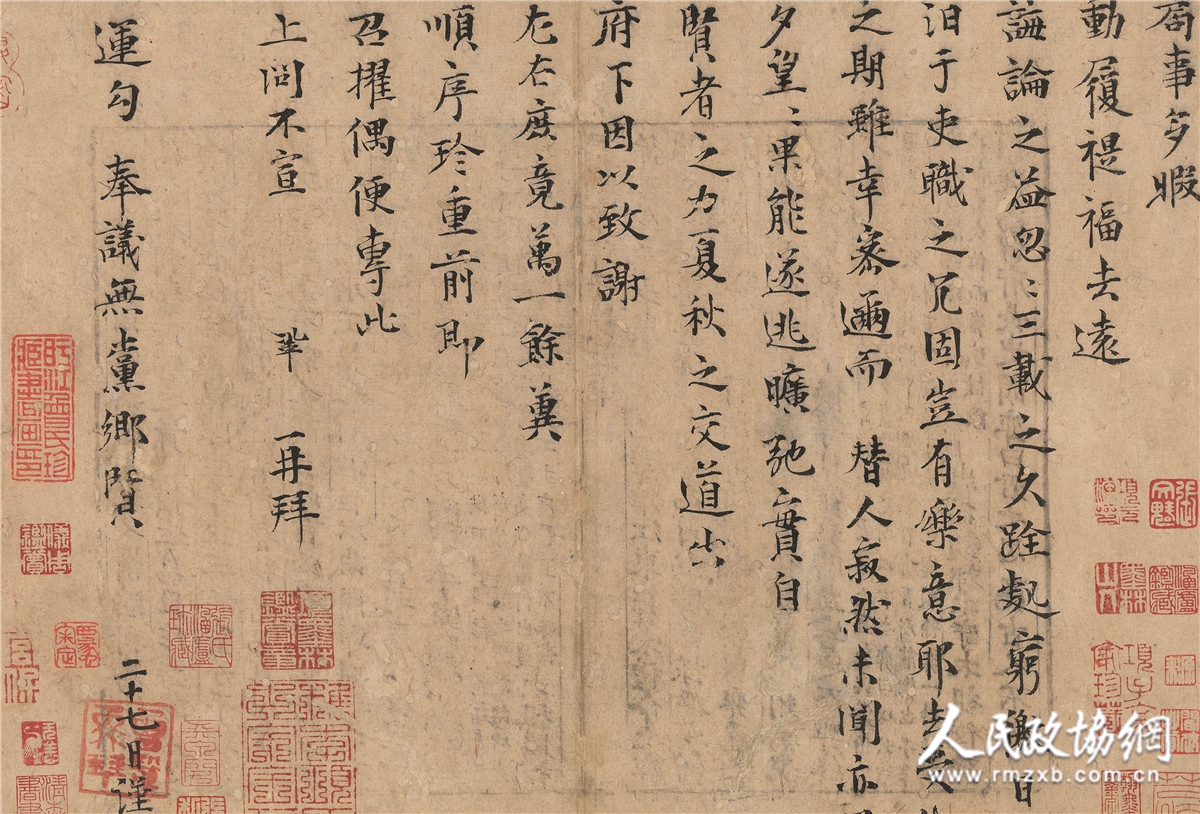 局事多暇
動履禔福去遠
誨論之益忽〻三載之久跧處窮徼日
汩于吏職之冗固豈有樂意耶去受
之期雖幸密邇而 替人寂然未聞亦
夕望〻果能遂逃曠弛實自
賢者之力夏秋之交道出
府下因以致謝
左右庶竟萬一餘冀
順序珍重前即
召擢偶便專此
上問不宣 鞏 再拜
運勾 奉議無黨鄉賢
二十七日謹
人民政協網
www.rmzxb.com.cn